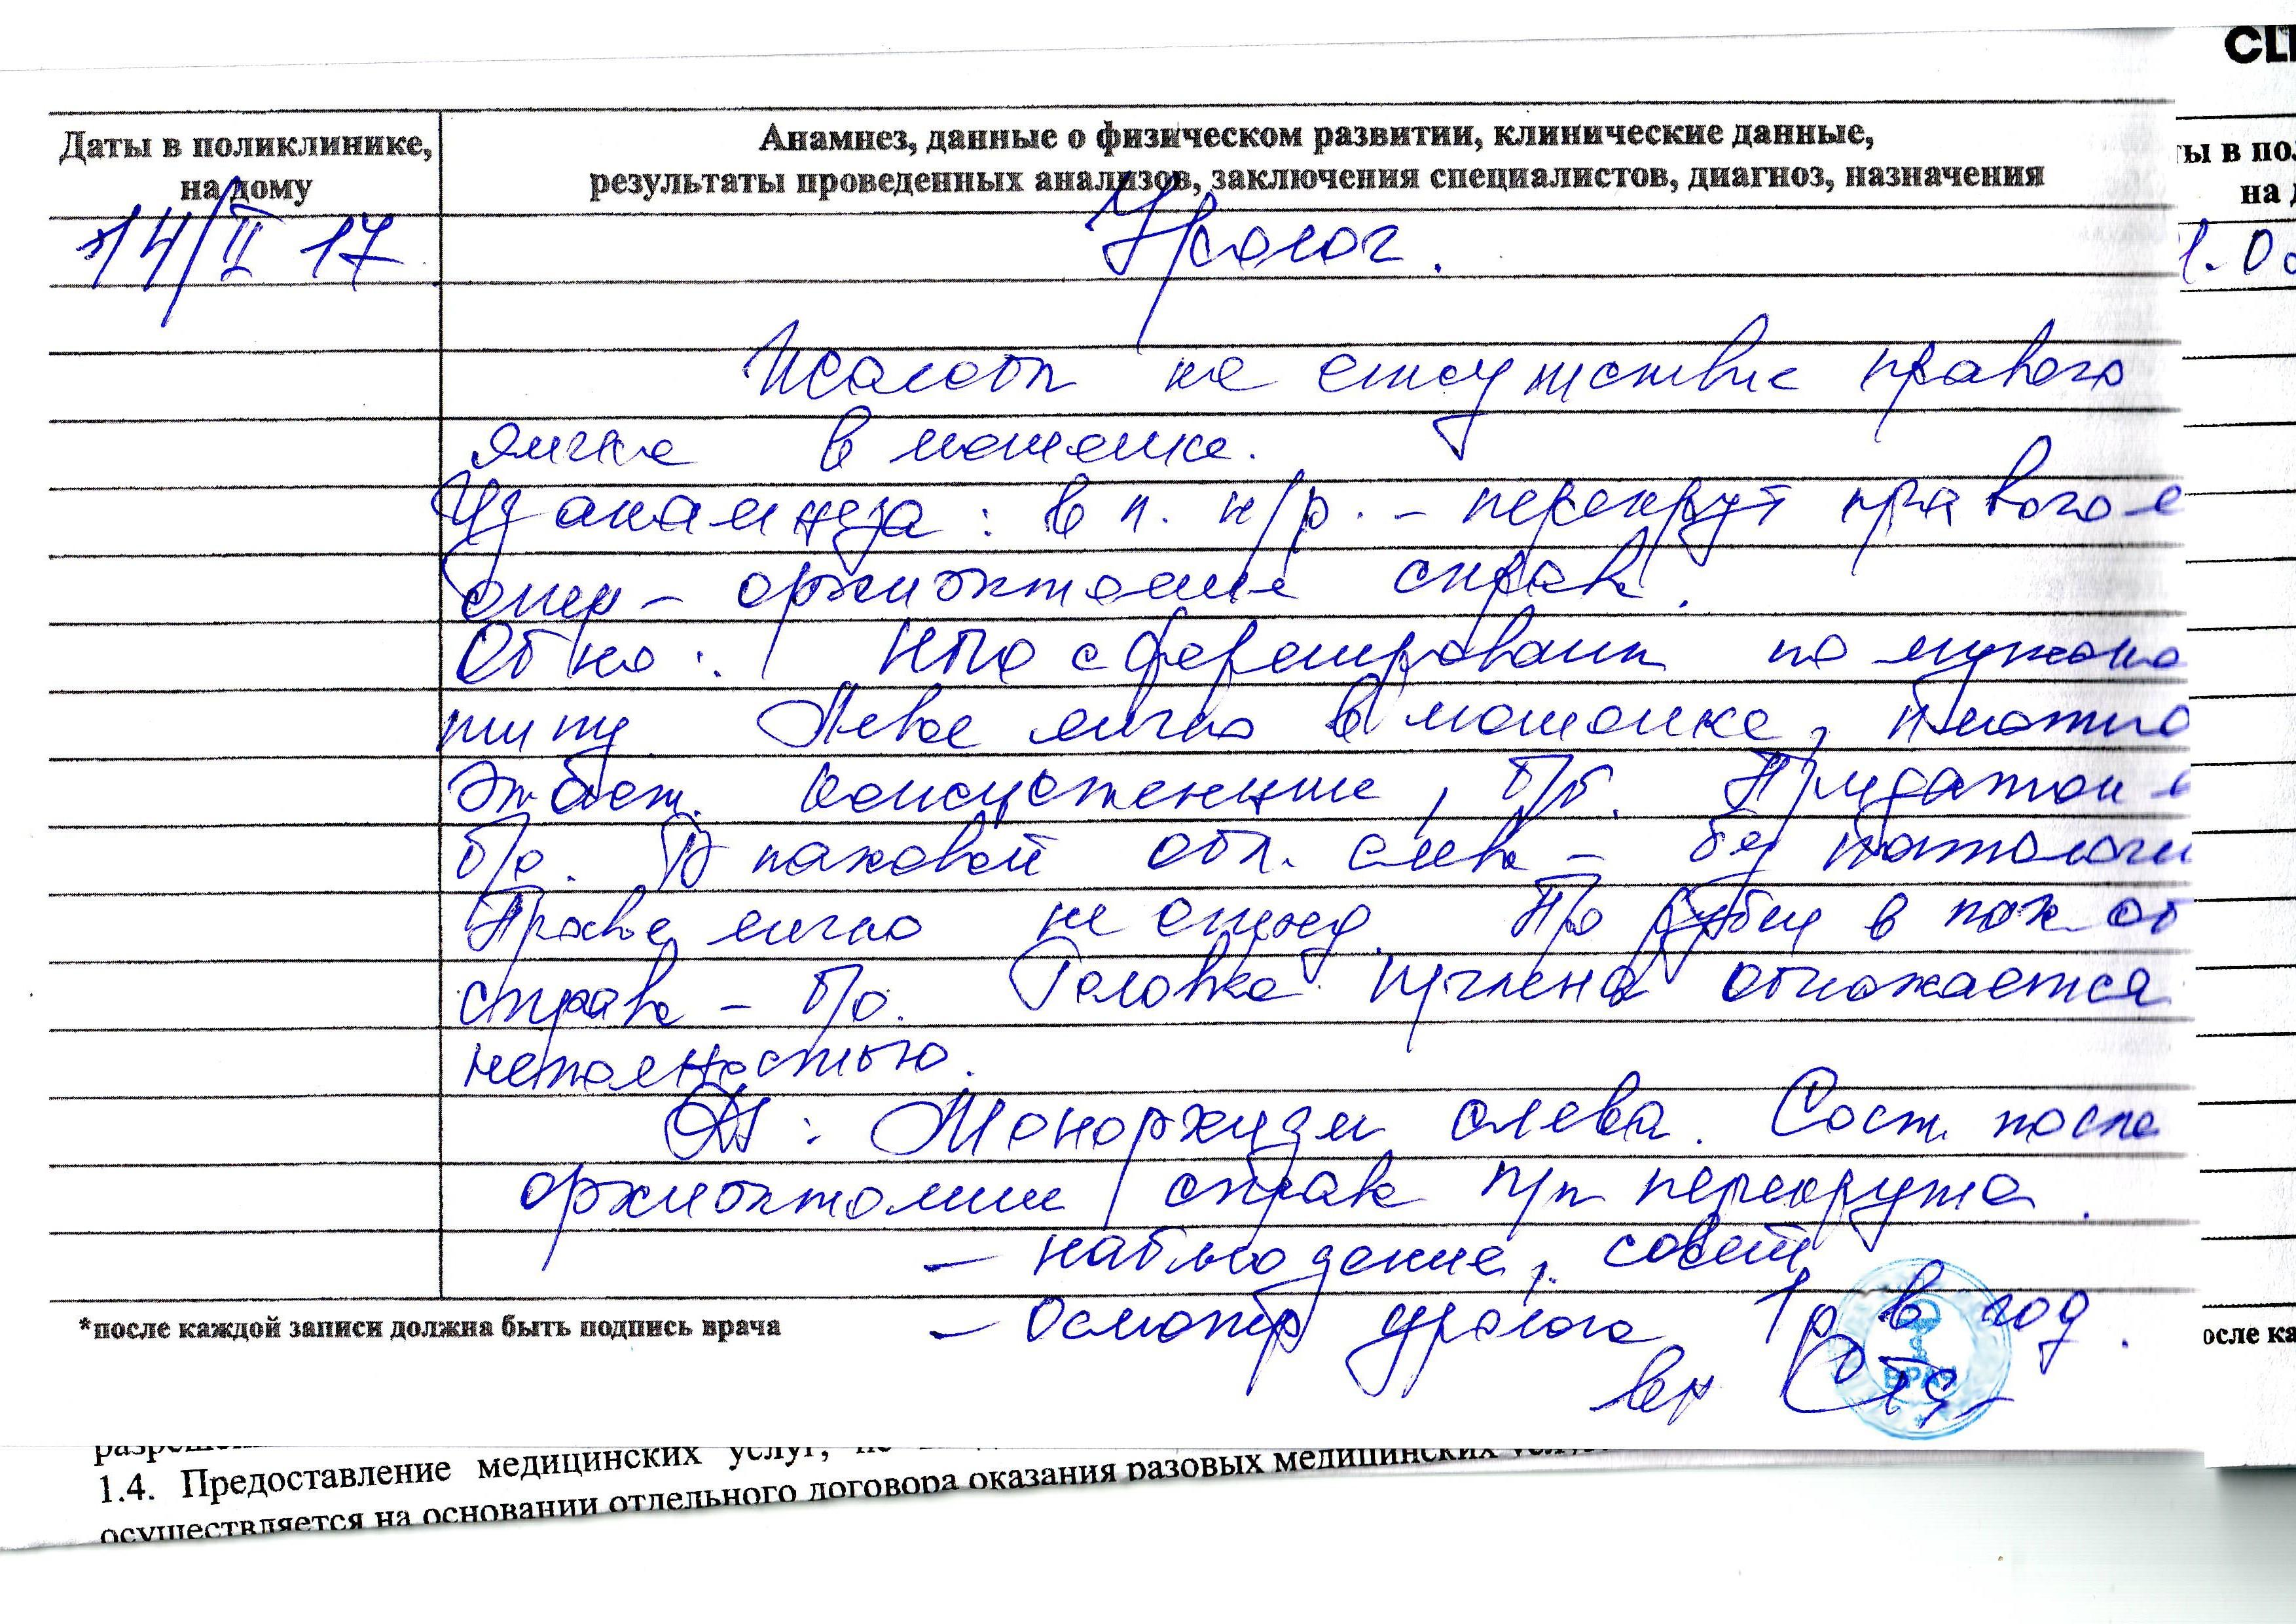 CLI
Даты в поликлинике,
на дому
Анамнез, данные о физическом развитии, клинические данные,
результаты проведенных анализов, заключения специалистов, диагноз, назначения
ты в пол
на д
14/II 17
Уролог.
Жалобы на отсутствие правого
яичка в мошонке.
Из анамнеза: в п. н/р. - перекрут правого я
опер - орхиэктомия справа.
Об-но: НПО сформированы по мужско
типу. Левое яичко в мошонке, плотно
эласт. консистенции, б/б. Придаток
б/о. В паховой обл. слева - без патологи
Правое яичко не опред. П/о рубец в пах. об
справа - б/о. Головка п/члена обнажается
неполностью.
DS: Монорхизм слева. Сост. после
орхиэктомии справа п/п перекрута.
- наблюдение, совет
- Осмотр уролога 1 р в год.
ВРАЧ
*после каждой записи должна быть подпись врача
осле ка
1.4. Предоставление медицинских услуг, не
осуществляется на основании отдельного договора оказания разовых медицинских услуг